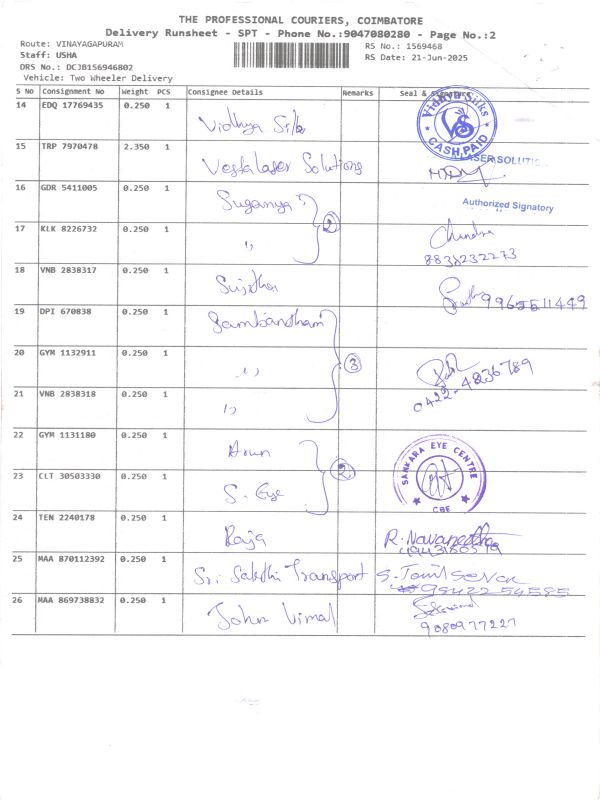 THE PROFESSIONAL COURIERS, COIMBATORE
Delivery Runsheet - SPT - Phone No.:9047080280 - Page No.:2
Route: VINAYAGAPURAM
RS No.: 1569468
Staff: USHA
RS Date: 21-Jun-2025
DRS No.: DCJB156946802
Vehicle: Two Wheeler Delivery
S No Consignment No Weight PCS Consignee Details Remarks Seal & Signature
14 EDQ 17769435 0.250 1 Vidhya Silks Vidhya Silks VS CASH PAID
15 TRP 7970478 2.350 1 Vestalaser Solutions LASER SOLUTION
16 GDR 5411005 0.250 1 Suganya Authorized Signatory
2
17 KLK 8226732 0.250 1 " Chandra
8838232273
18 VNB 2838317 0.250 1 Sujatha 9965511449
19 DPI 670838 0.250 1 Sambandham
20 GYM 1132911 0.250 1 " 3
0422-4836789
21 VNB 2838318 0.250 1 "
22 GYM 1131180 0.250 1 Arun SANKARA EYE CENTRE
CBE
2
23 CLT 30503330 0.250 1 S. Eye
24 TEN 2240178 0.250 1 Raja R. Navaneetha
25 MAA 870112392 0.250 1 Sri Sakthi Transport S. Tamilselvan
9842254585
26 MAA 869738832 0.250 1 John Vimal
9080977227